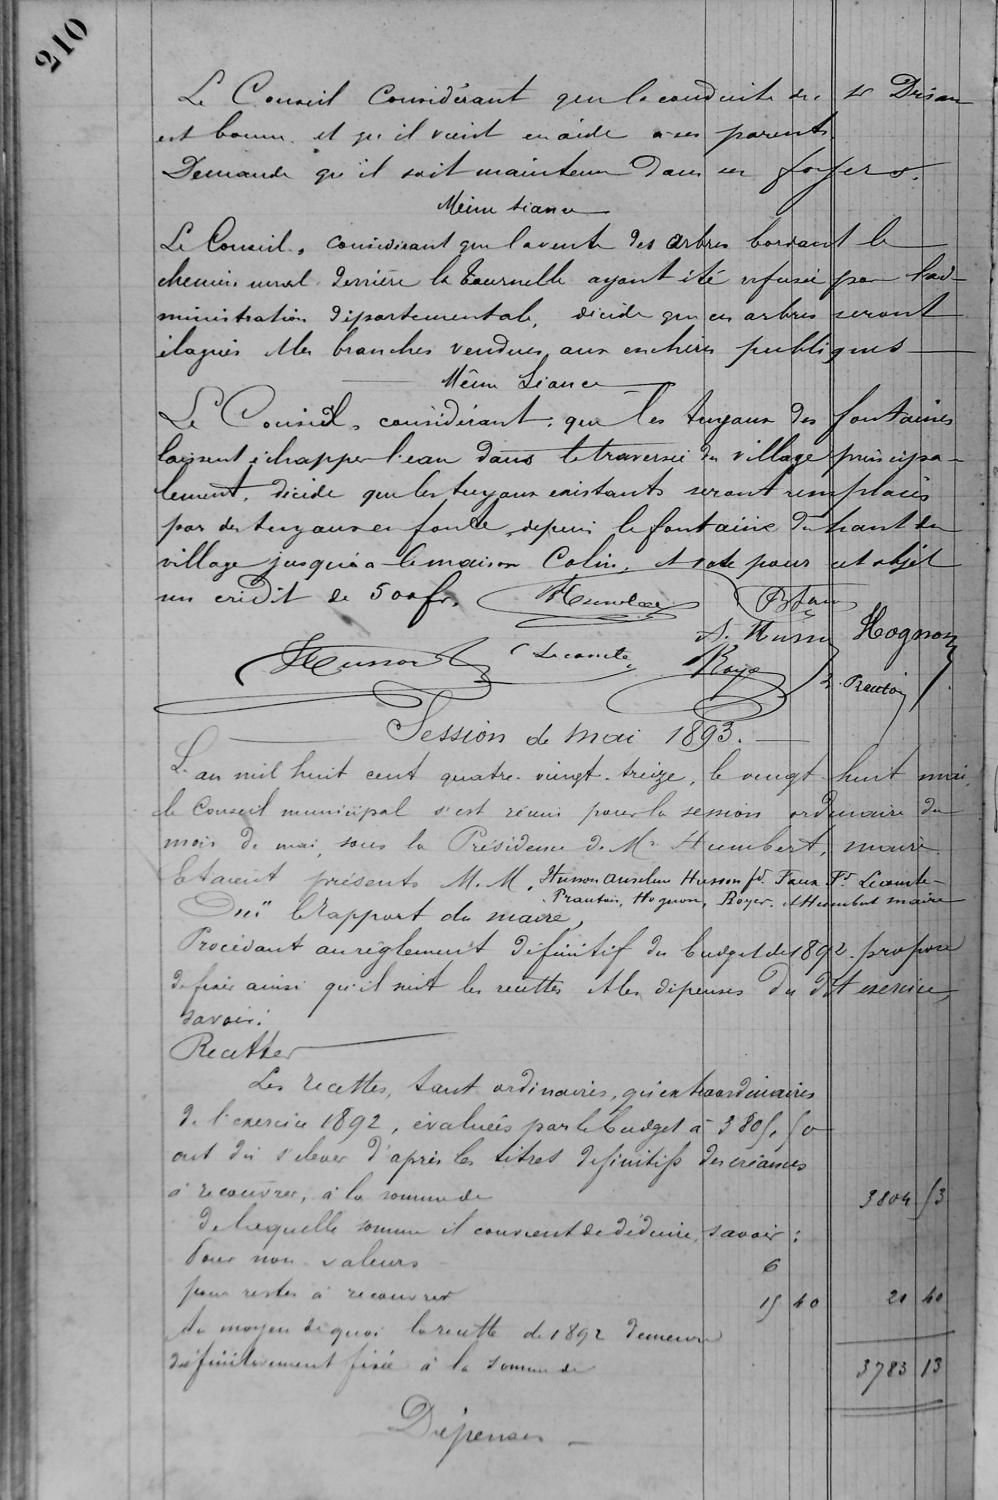 210
Le Conseil Considérant que la conduite du sr Drisan
est bonne et qu'il vient en aide à ses parents.
Demande qu'il soit maintenu dans ses foyers.
Même séance
Le Conseil, considérant que la vente des arbres bordant le
chemin rural derrière la Tournelle ayant été refusée par l'ad-
ministration départementale, décide que ces arbres seront
élagués et les branches vendues aux enchères publiques
Même Séance
Le Conseil, considérant que les tuyaux des fontaines
laissent échapper l'eau dans la traversée du village principa-
lement, décide que les tuyaux existants seront remplacés
par des tuyaux en fonte, depuis la fontaine du haut du
village jusqu'à la maison Colin, et vote pour cet objet
un crédit de 500 fr.
A. Husson Hognon
Husson Lecomte Royer Prautois
Session de mai 1893.
L'an mil huit cent quatre-vingt-treize, le vingt huit mai,
le Conseil municipal s'est réuni pour la session ordinaire du
mois de mai, sous la Présidence de Mr Humbert, maire.
Etaient présents M.M. Husson Anselme Husson fd. Faux Fd. Lecomte-
Prautois, Hognon, Royer. et Humbert maire
Ouï le Rapport du maire,
Procédant au règlement définitif du budget de 1892. propose
de fixer ainsi qu'il suit les recettes et les dépenses du dit exercice,
savoir:
Recettes
Les recettes, tant ordinaires, qu'extraordinaires
de l'exercice 1892, évaluées par le budget à 3805,50
ont dû s'élever d'après les titres définitifs des créances
à recouvrer, à la somme de 3804 53
de laquelle somme il convient de déduire, savoir:
Pour non-valeurs 6
pour restes à recouvrer 15 40 21 40
Au moyen de quoi la recette de 1892 demeure
définitivement fixée à la somme de 3783 13
Dépenses